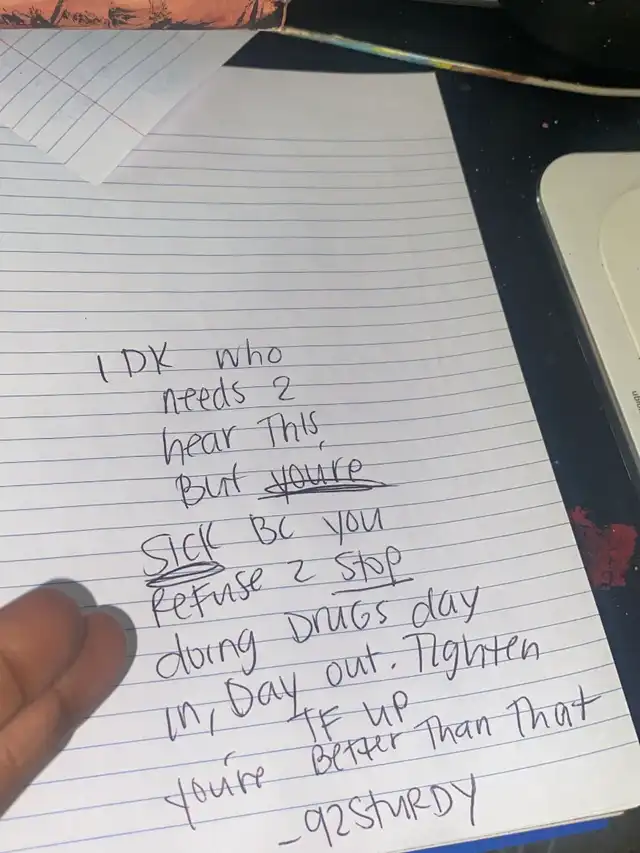 IDK who
needs 2
hear This,
But you're
SICK BC you
Refuse 2 stop
doing DRUGS day
in, Day out. Tighten
TF UP
you're Better Than That
-92STURDY